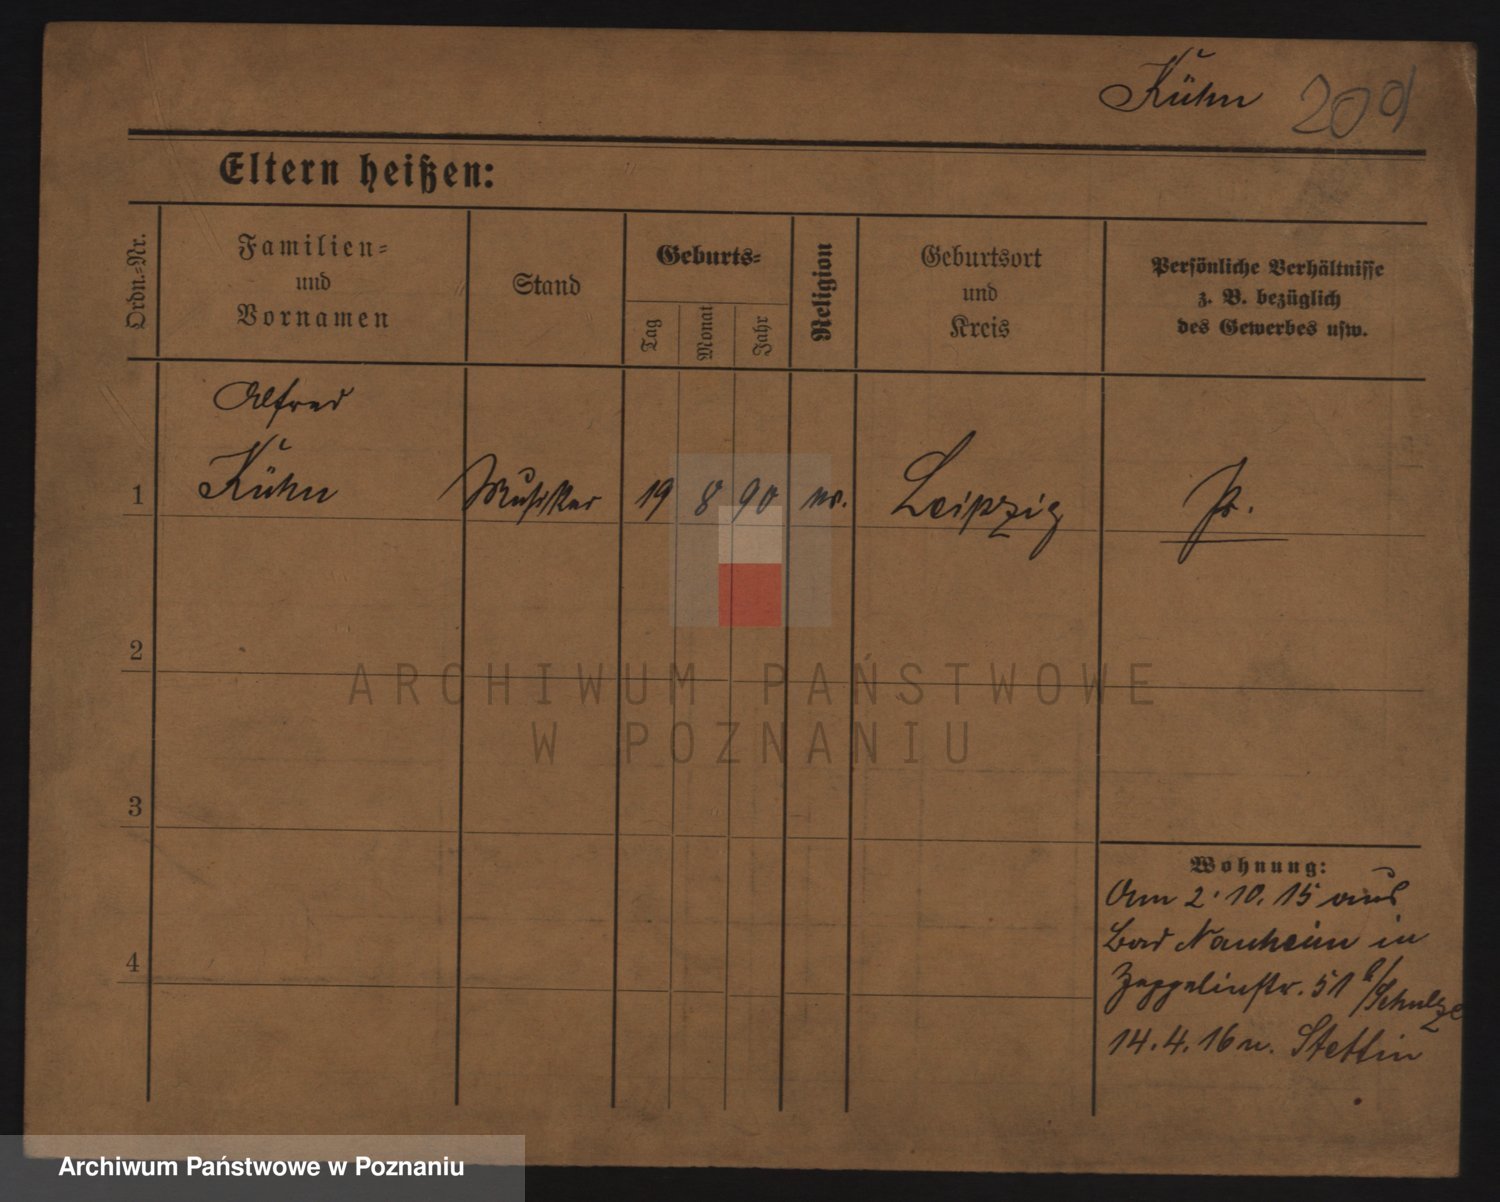 Kühn 200
Eltern heißen:
Ordn.-Nr.
Familien-
und
Vornamen
Stand
Geburts-
Tag
Monat
Jahr
Religion
Geburtsort
und
Kreis
Persönliche Verhältnisse
z. B. bezüglich
des Gewerbes usw.
Alfred
1 Kühn Musiker 19 8 90 Leipzig Pr.
2
3
4
Wohnung:
Am 2.10.15 aus
Bad Nauheim in
Zeppelinstr. 51 b/Schulze
14.4.16 n. Stettin
ARCHIWUM PAŃSTWOWE
W POZNANIU
Archiwum Państwowe w Poznaniu